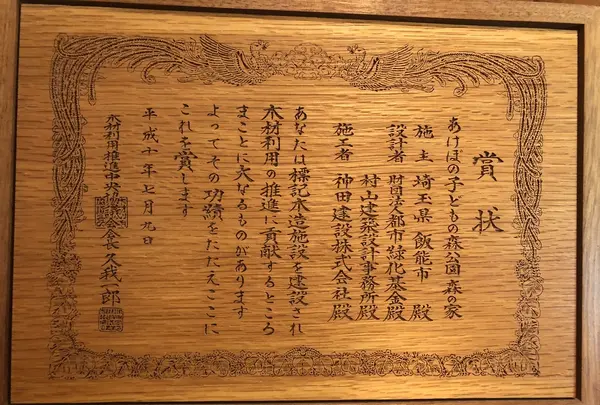 賞状
あけぼの子どもの森公園森の家
施主 埼玉県飯能市 殿
設計者 財団法人都市緑化基金殿
村山建築設計事務所殿
施工者 神田建設株式会社殿
あなたは標記木造施設を建設され
木材利用の推進に貢献するところ
まことに大なるものがあります
よってその功績をたたえここに
これを賞します
平成十年七月九日
木材利用推進中央協議会会長 久我一郎